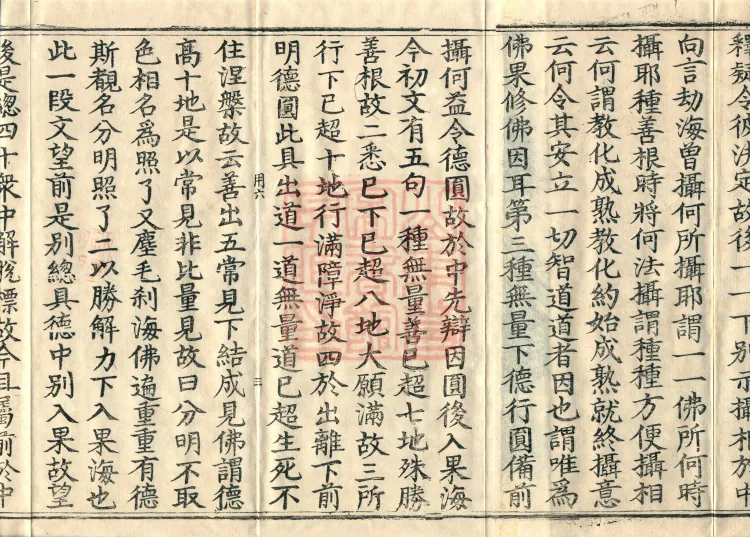 釋疑令彼法定故後一一下別示攝相於中
向言劫海曾攝何所攝耶謂一一佛所何時
攝耶種善根時將何法攝謂種種方便攝相
云何謂教化成熟教化約始成熟就終攝意
云何令其安立一切智道道者因也謂唯為
佛果修佛因耳第三種無量下德行圓備前
攝何益今德圓故於中先辯因圓後入果海
今初文有五句一種無量善已超七地殊勝
善根故二悉已下已超八地大願滿故三所
行下已超十地行滿障淨故四於出離下前
明德圓此具出道一道無量道已超生死不
用六
三
住涅槃故云善出五常見下結成見佛謂德
高十地是以常見非比量見故曰分明不取
色相名為照了又塵毛刹海佛遍重重有德
斯觀名分明照了二以勝解力下入果海也
此一段文望前是別總具德中別入果故望
後是總四十衆中解脫標故今且屬前於中